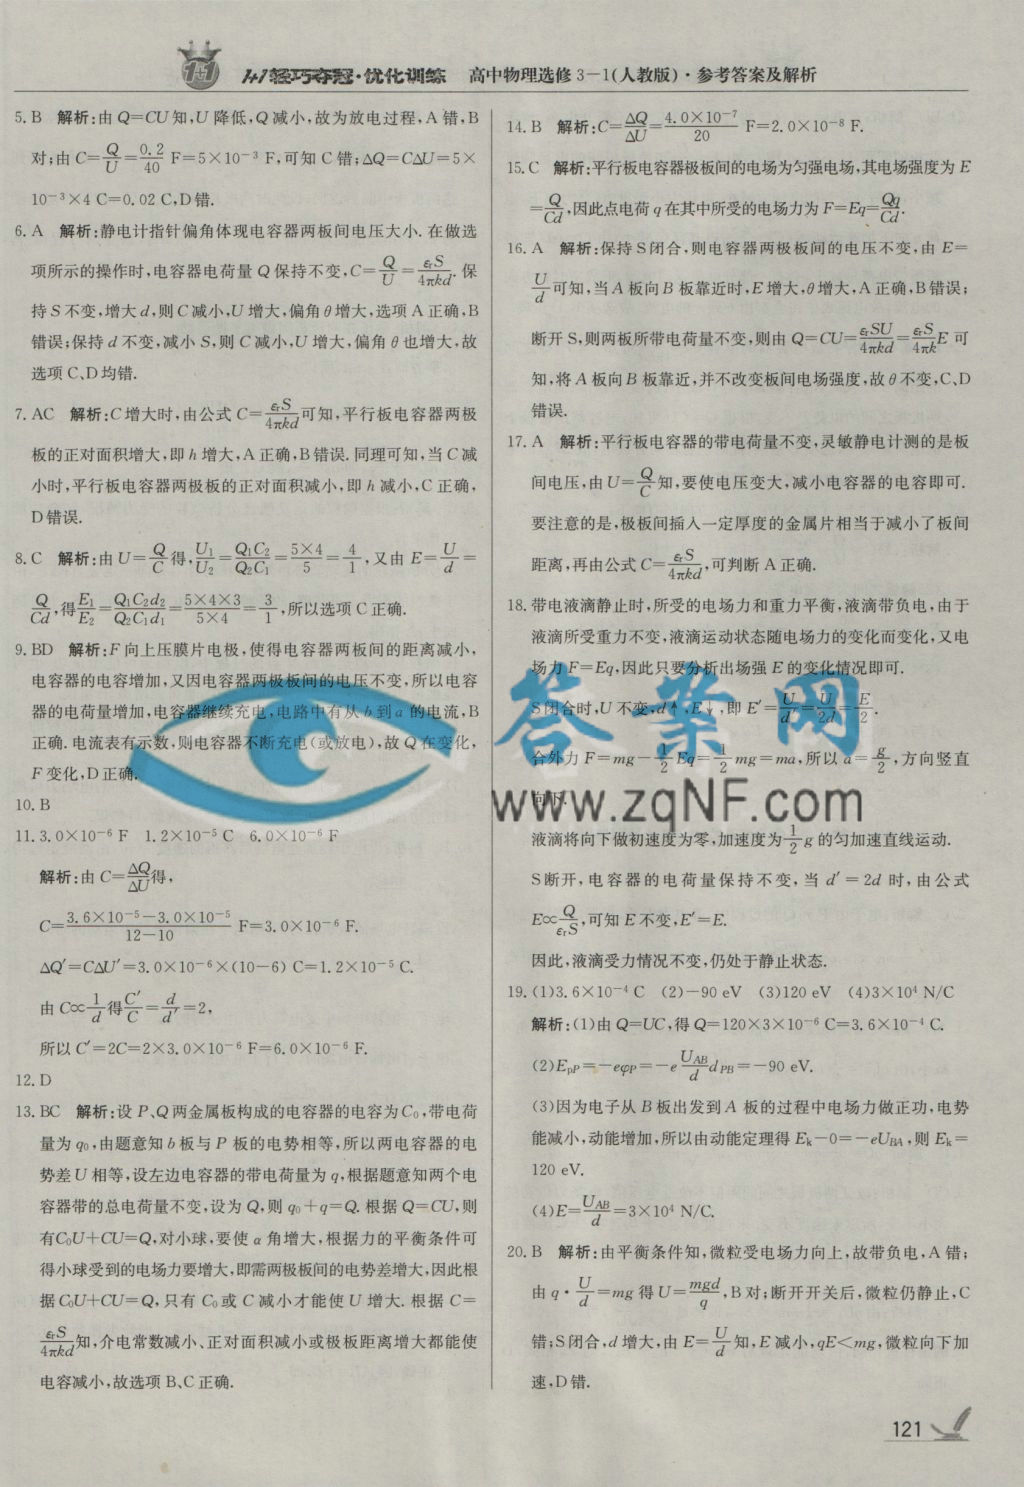 1+1轻巧夺冠·优化训练 高中物理选修3-1(人教版)·参考答案及解析
5. B 解析:由Q=CU知,U降低,Q减小,故为放电过程,A错,B
对;由C=Q/U=0.2/40 F=5×10⁻³ F,可知C错;ΔQ=CΔU=5×
10⁻³×4 C=0.02 C,D错.
6. A 解析:静电计指针偏角体现电容器两板间电压大小.在做选
项所示的操作时,电容器电荷量Q保持不变,C=Q/U=εrS/4πkd.保
持S不变,增大d,则C减小,U增大,偏角θ增大,选项A正确,B
错误;保持d不变,减小S,则C减小,U增大,偏角θ也增大,故
选项C、D均错.
7. AC 解析:C增大时,由公式C=εrS/4πkd可知,平行板电容器两极
板的正对面积增大,即h增大,A正确,B错误.同理可知,当C减
小时,平行板电容器两极板的正对面积减小,即h减小,C正确,
D错误.
8. C 解析:由U=Q/C得,U₁/U₂=Q₁C₂/Q₂C₁=5×4/5=4/1,又由E=U/d=
Q/Cd,得E₁/E₂=Q₁C₂d₂/Q₂C₁d₁=5×4×3/5×4=3/1,所以选项C正确.
9. BD 解析:F向上压膜片电极,使得电容器两板间的距离减小,
电容器的电容增加,又因电容器两极板间的电压不变,所以电容
器的电荷量增加,电容器继续充电,电路中有从b到a的电流,B
正确.电流表有示数,则电容器不断充电(或放电),故Q在变化,
F变化,D正确.
10. B
11. 3.0×10⁻⁶ F 1.2×10⁻⁵ C 6.0×10⁻⁶ F
解析:由C=ΔQ/ΔU得,
C=3.6×10⁻⁵-3.0×10⁻⁵/12-10 F=3.0×10⁻⁶ F.
ΔQ′=CΔU′=3.0×10⁻⁶×(10-6) C=1.2×10⁻⁵ C.
由C∝1/d得C′/C=d/d′=2,
所以C′=2C=2×3.0×10⁻⁶ F=6.0×10⁻⁶ F.
12. D
13. BC 解析:设P、Q两金属板构成的电容器的电容为C₀,带电荷
量为q₀,由题意知b板与P板的电势相等,所以两电容器的电
势差U相等,设左边电容器的带电荷量为q,根据题意知两个电
容器带的总电荷量不变,设为Q,则q₀+q=Q.根据Q=CU,则
有C₀U+CU=Q,对小球,要使α角增大,根据力的平衡条件可
得小球受到的电场力要增大,即需两极板间的电势差增大,因此根
据C₀U+CU=Q,只有C₀或C减小才能使U增大.根据C=
εrS/4πkd知,介电常数减小、正对面积减小或极板距离增大都能使
电容减小,故选项B、C正确.
14. B 解析:C=ΔQ/ΔU=4.0×10⁻⁷/20 F=2.0×10⁻⁸ F.
15. C 解析:平行板电容器极板间的电场为匀强电场,其电场强度为E
=Q/Cd,因此点电荷q在其中所受的电场力为F=Eq=Qq/Cd.
16. A 解析:保持S闭合,则电容器两极板间的电压不变,由E=
U/d可知,当A板向B板靠近时,E增大,θ增大,A正确,B错误;
断开S,则两板所带电荷量不变,则由Q=CU=εrSU/4πkd=εrS/4πkE可
知,将A板向B板靠近,并不改变板间电场强度,故θ不变,C、D
错误.
17. A 解析:平行板电容器的带电荷量不变,灵敏静电计测的是板
间电压,由U=Q/C知,要使电压变大,减小电容器的电容即可.
要注意的是,极板间插入一定厚度的金属片相当于减小了板间
距离,再由公式C=εrS/4πkd,可判断A正确.
18. 带电液滴静止时,所受的电场力和重力平衡,液滴带负电,由于
液滴所受重力不变,液滴运动状态随电场力的变化而变化,又电
场力F=Eq,因此只要分析出场强E的变化情况即可.
S闭合时,U不变,d↑,E↓,即E′=U/d′=U/2d=E/2.
合外力F=mg-1/2Eq=1/2mg=ma,所以a=g/2,方向竖直
向下.
液滴将向下做初速度为零,加速度为1/2g的匀加速直线运动.
S断开,电容器的电荷量保持不变,当d′=2d时,由公式
E∝Q/εrS,可知E不变,E′=E.
因此,液滴受力情况不变,仍处于静止状态.
19. (1)3.6×10⁻⁴ C (2)-90 eV (3)120 eV (4)3×10⁴ N/C
解析:(1)由Q=UC,得Q=120×3×10⁻⁶ C=3.6×10⁻⁴ C.
(2)EpP=-eφP=-eUAB/d dPB=-90 eV.
(3)因为电子从B板出发到A板的过程中电场力做正功,电势
能减小,动能增加,所以由动能定理得Ek-0=-eUBA,则Ek=
120 eV.
(4)E=UAB/d=3×10⁴ N/C.
20. B 解析:由平衡条件知,微粒受电场力向上,故带负电,A错;
由q·U/d=mg得U=mgd/q,B对;断开开关后,微粒仍静止,C
错;S闭合,d增大,由E=U/d知,E减小,qE<mg,微粒向下加
速,D错.
答案网
www.zqNF.com
121